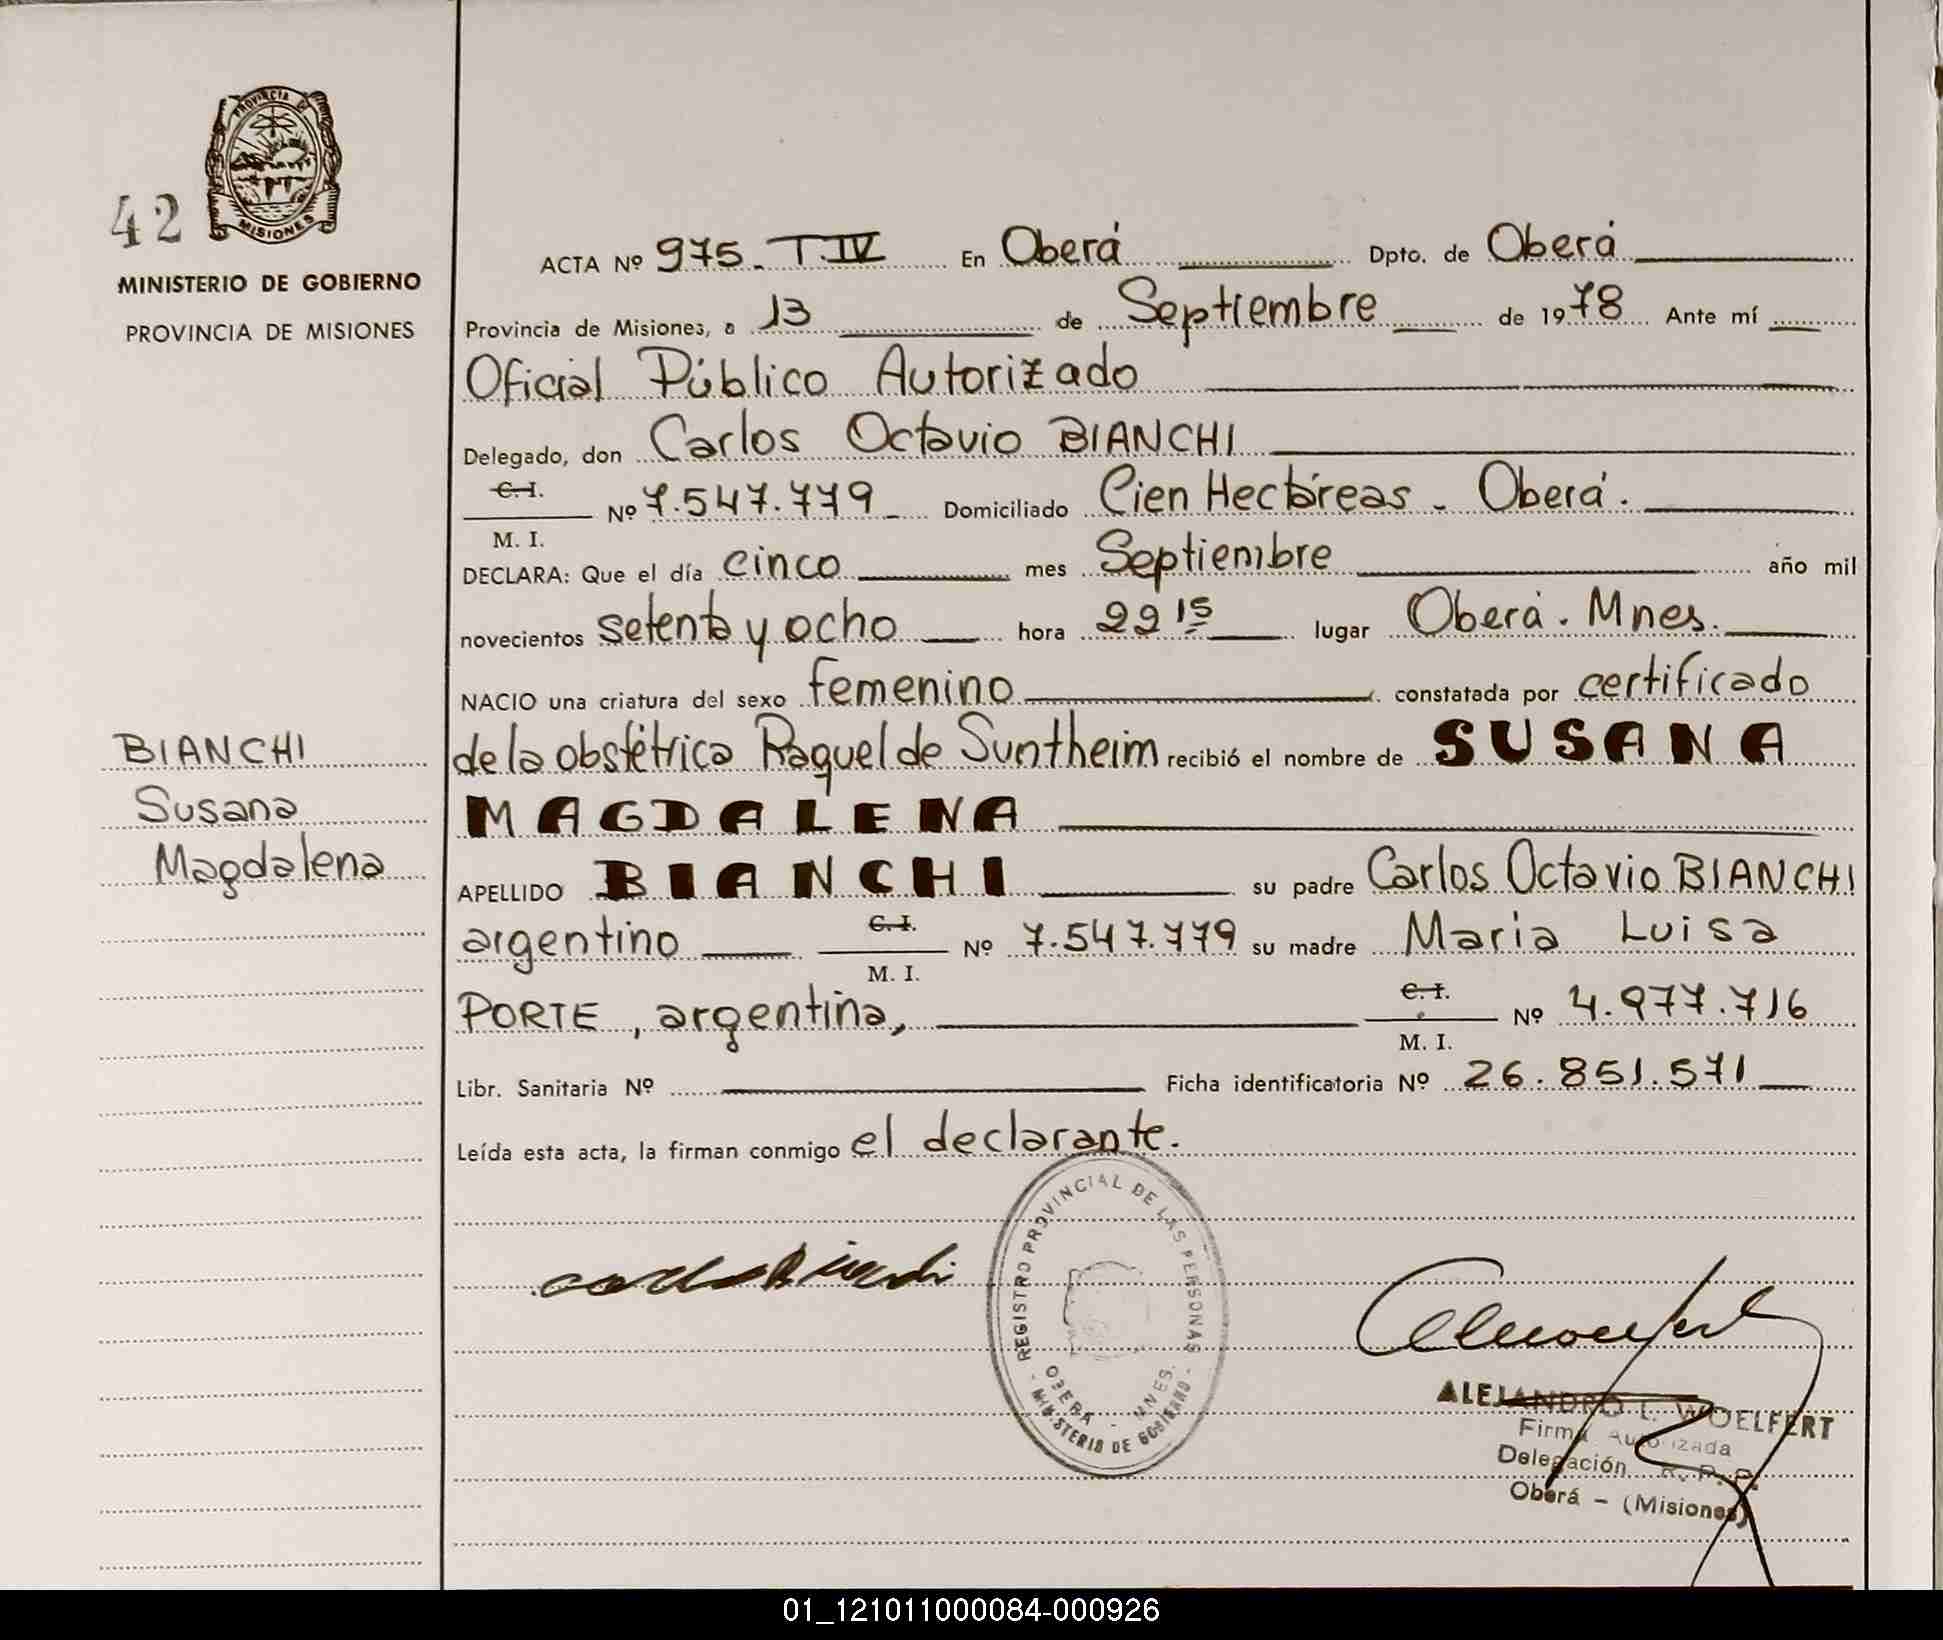 PROVINCIA DE
MISIONES
42
MINISTERIO DE GOBIERNO
PROVINCIA DE MISIONES
BIANCHI
Susana
Magdalena
ACTA Nº 975. T.IV En Oberá Dpto. de Oberá
Provincia de Misiones, a 13 de Septiembre de 1978 Ante mí
Oficial Público Autorizado
Delegado, don Carlos Octavio BIANCHI
C.I.
M. I. Nº 7.547.779 Domiciliado Cien Hectáreas - Oberá.
DECLARA: Que el día cinco mes Septiembre año mil
novecientos setenta y ocho hora 22 15 lugar Oberá. Mnes.
NACIO una criatura del sexo femenino constatada por certificado
de la obstétrica Raquel de Suntheim recibió el nombre de SUSANA
MAGDALENA
APELLIDO BIANCHI su padre Carlos Octavio BIANCHI
argentino C.I.
M. I. Nº 7.547.779 su madre Maria Luisa
PORTE, argentina, C.I.
M. I. Nº 4.977.716
Libr. Sanitaria Nº Ficha identificatoria Nº 26.851.571
Leída esta acta, la firman conmigo el declarante.
REGISTRO PROVINCIAL DE LAS PERSONAS
OBERA - MNES.
- MINISTERIO DE GOBIERNO -
ALEJANDRO L. WOELFERT
Firma Autorizada
Delegación R. P. P.
Oberá - (Misiones)
01_121011000084-000926